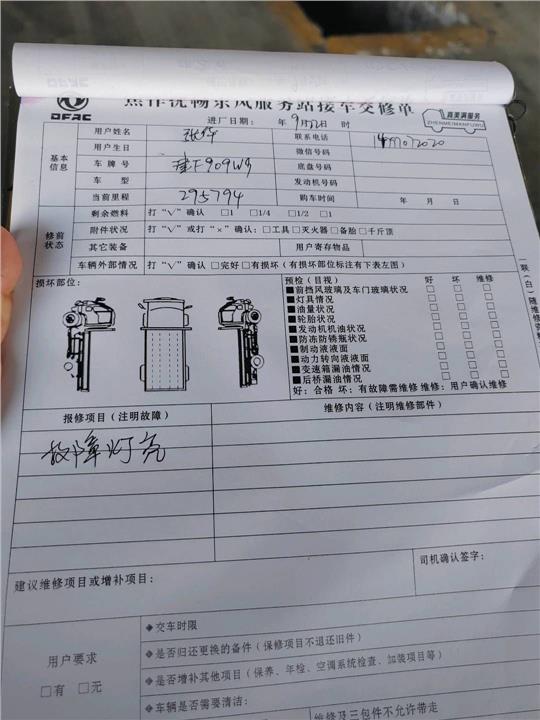 DFAC
焦作优畅东风服务站接车交修单
真美满服务
ZHENMEIMANFUWU
进厂日期: 年 9月22日 时
基本信息
用户姓名 联系电话
用户生日 微信号码
车牌号 底盘号码
车型 发动机号码
当前里程 295794 购车时间 年 月 日
修前状态
剩余燃料 打"√"确认 □1 □1/4 □1/2 □1
附件状况 打"√"或打"×"确认: □工具 □灭火器 □备胎 □千斤顶
其它装备 用户寄存物品
车辆外部情况 打"√"确认 □完好 □有损坏(有损坏部位标注有下表左图)
损坏部位:
预检(目视) 好 坏 维修
■前挡风玻璃及车门玻璃状况 □ □ □
■灯具情况 □ □ □
■油量状况 □ □ □
■轮胎状况 □ □ □
■发动机机油状况 □ □ □
■防冻防锈瓶状况 □ □ □
■制动液液面 □ □ □
■动力转向液液面 □ □ □
■变速箱漏油情况 □ □ □
■后桥漏油情况 □ □ □
好:合格 坏:有故障需维修 维修:用户确认维修
报修项目(注明故障) 维修内容(注明维修部件)
故障灯亮
建议维修项目或增补项目:
司机确认签字:
用户要求
□有 □无
◆交车时限
◆是否归还更换的备件(保修项目不退还旧件)
◆是否增补其他项目(保养、年检、空调系统检查、加装项目等)
◆车辆是否需要清洁:
维修及三包件不允许带走